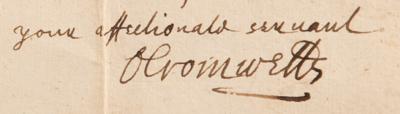 your affectionate servant
OCromwell